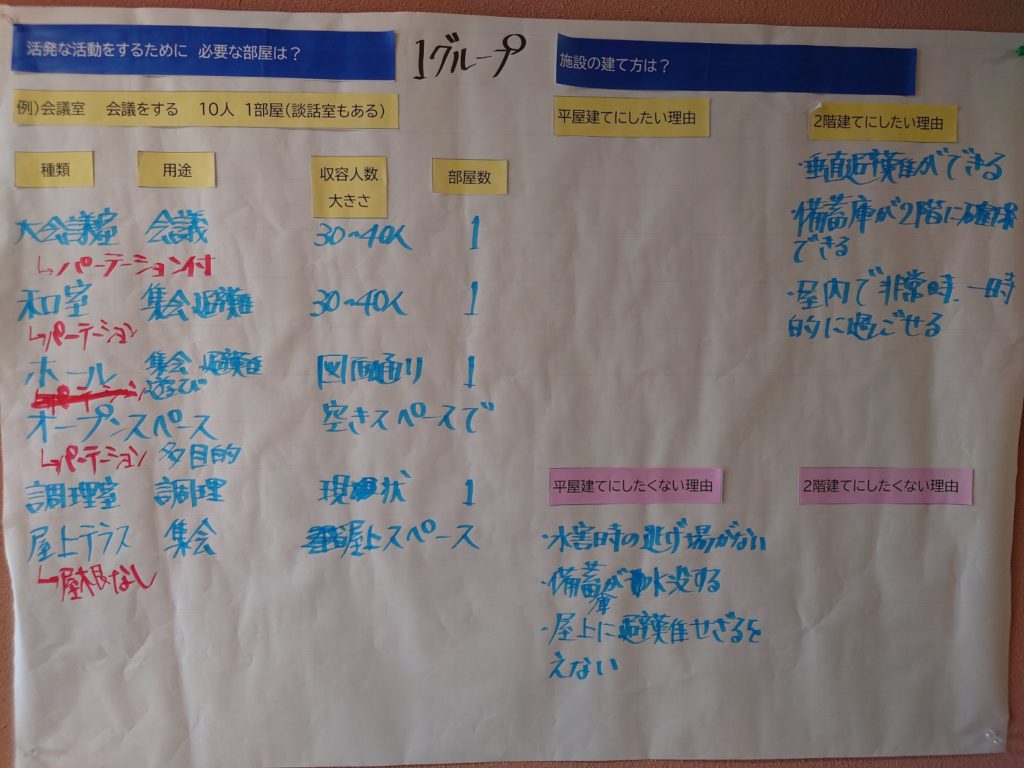 1グループ
活発な活動をするために 必要な部屋は?
例)会議室 会議をする 10人 1部屋(談話室もある)
種類 用途 収容人数 大きさ 部屋数
大会議室 会議 30~40人 1
↳パーテーション付
和室 集会 避難 30~40人 1
↳パーテーション
ホール 集会 避難 遊び 図面通り 1
オープンスペース 空きスペースで
↳パーテーション 多目的
調理室 調理 現状 1
屋上テラス 集会 屋上スペース
↳屋根なし
施設の建て方は?
平屋建てにしたい理由
2階建てにしたい理由
・垂直避難ができる
備蓄庫が2階に確保
できる
・屋内で非常時、一時
的に過ごせる
平屋建てにしたくない理由
・水害時の逃げ場がない
・備蓄庫が水没する
・屋上に避難せざるを
えない
2階建てにしたくない理由